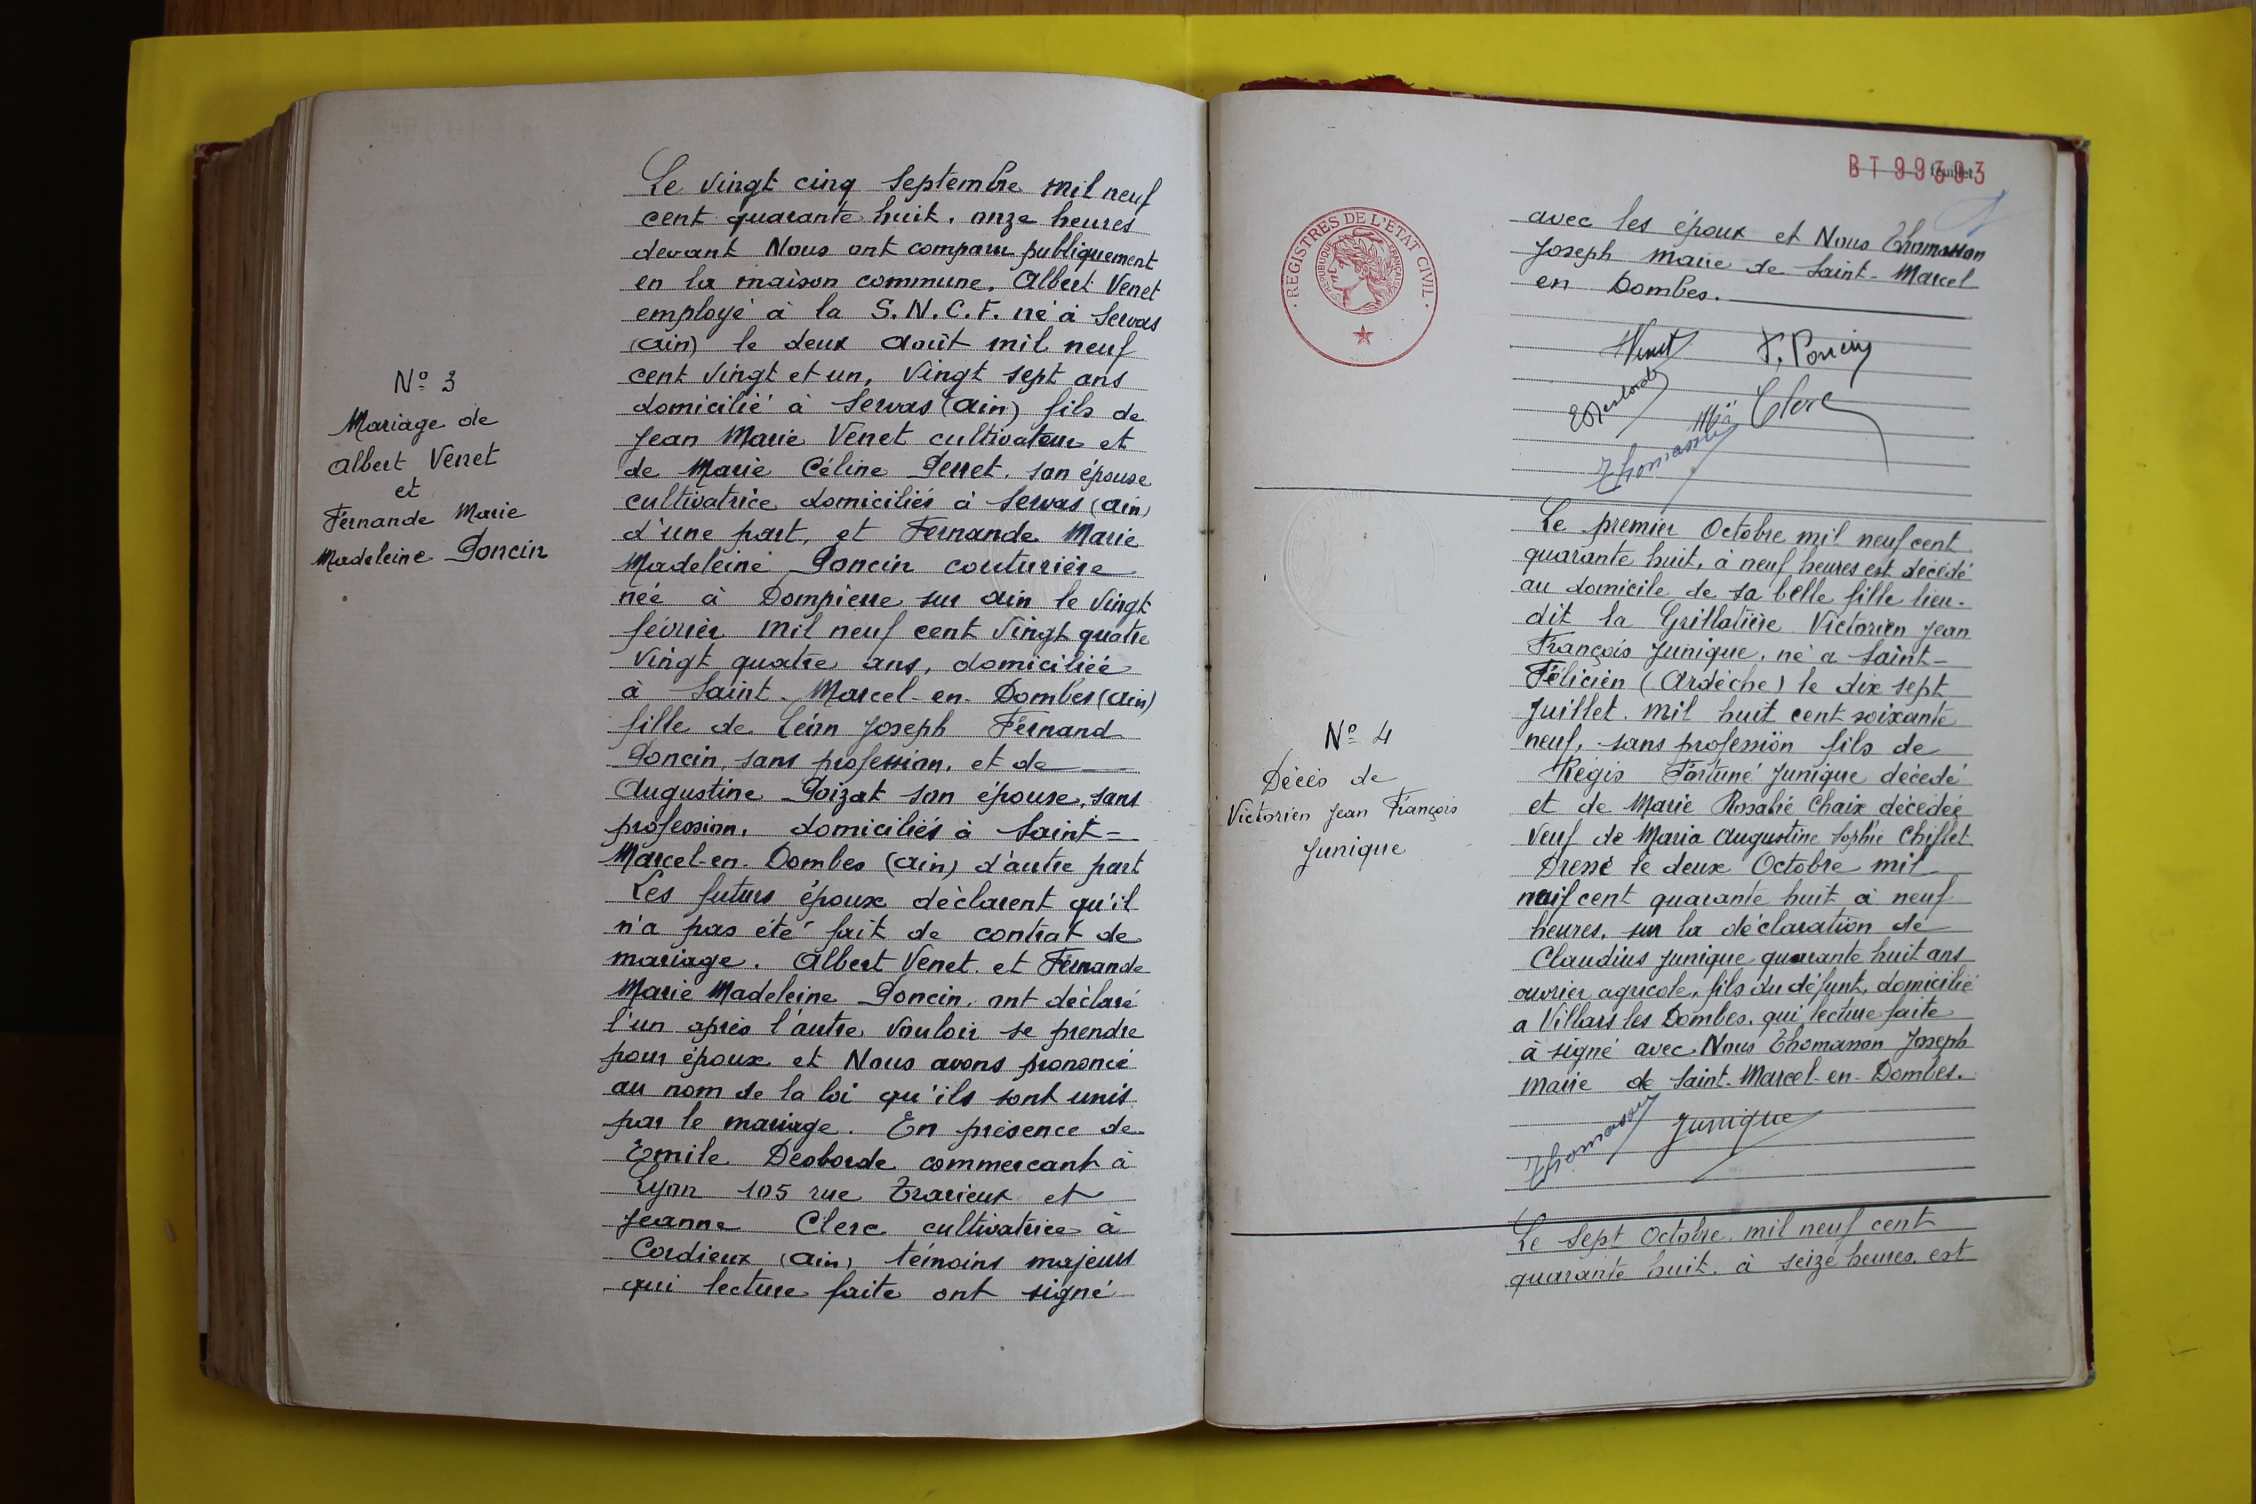 Le vingt cinq Septembre mil neuf
cent quarante huit, onze heures
devant Nous ont comparu publiquement
en la maison commune, Albert Venet
employé à la S.N.C.F. né à Servas
(Ain) le deux Août mil neuf
cent vingt et un, vingt sept ans
domicilié à Servas (Ain) fils de
Jean Marie Venet cultivateur et
de Marie Céline Perret, son épouse
cultivatrice domiciliés à Servas (Ain)
d'une part, et Fernande Marie
Madeleine Poncin couturière
née à Dompierre sur Ain le vingt
février mil neuf cent vingt quatre
vingt quatre ans, domiciliée
à Saint-Marcel-en-Dombes (Ain)
fille de Léon Joseph Fernand
Poncin, sans profession, et de
Augustine Poizat son épouse, sans
profession, domiciliés à Saint-
Marcel-en-Dombes (Ain) d'autre part
Les futurs époux déclarent qu'il
n'a pas été fait de contrat de
mariage. Albert Venet et Fernande
Marie Madeleine Poncin, ont déclaré
l'un après l'autre vouloir se prendre
pour époux et Nous avons prononcé
au nom de la loi qu'ils sont unis
par le mariage. En présence de
Emile Desborde commercant à
Lyon 105 rue Trarieux et
Jeanne Clerc cultivatrice à
Cordieux (Ain) témoins majeurs
qui lecture faite ont signé
N° 3
Mariage de
Albert Venet
et
Fernande Marie
Madeleine Poncin
BT 99393
feuillet
REGISTRES DE L'ÉTAT CIVIL
RÉPUBLIQUE FRANÇAISE
avec les époux et Nous Thomasson
Joseph maire de Saint-Marcel
en Dombes.
Venet F. Poncin
E Desborde Clerc
Thomasson
Le premier Octobre mil neuf cent
quarante huit, à neuf heures est décédé
au domicile de sa belle fille lieu-
dit la Grillatière Victorien Jean
François Junique, né a Saint-
Félicien (Ardèche) le dix sept
Juillet mil huit cent soixante
neuf, sans profession fils de
Régis Fortuné Junique décédé
et de Marie Rosalie Chaix décédée
Veuf de Maria Augustine Sophie Chiflet
Dressé le deux Octobre mil
neuf cent quarante huit à neuf
heures, sur la déclaration de
Claudius Junique quarante huit ans
ouvrier agricole, fils du défunt, domicilié
a Villars les Dombes, qui lecture faite
à signé avec Nous Thomasson Joseph
maire de Saint-Marcel-en-Dombes.
Thomasson Junique
N° 4
Décès de
Victorien Jean François
Junique
Le sept Octobre mil neuf cent
quarante huit, à seize heures, est